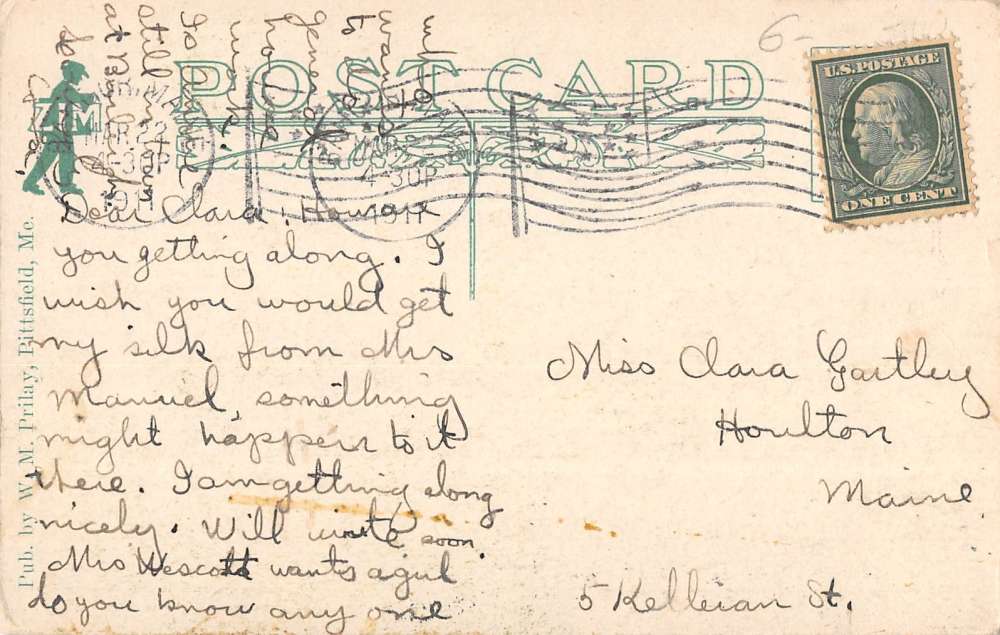 POST CARD
U.S. POSTAGE
ONE CENT
6-
APR 22
4-30P
4-30P
1912
Dear Clara; How are
you getting along. I
wish you would get
my silk from Mrs
Manuel, something
might happen to it
there. I am getting along
nicely. Will write soon.
Mrs Wescott wants a girl
do you know any one
who
wants
to do
general
house
work.
Is
still
at
Miss Clara Gartley
Houlton
Maine.
5 Kelleran St.
Pub. by W. M. Prilay, Pittsfield, Me.